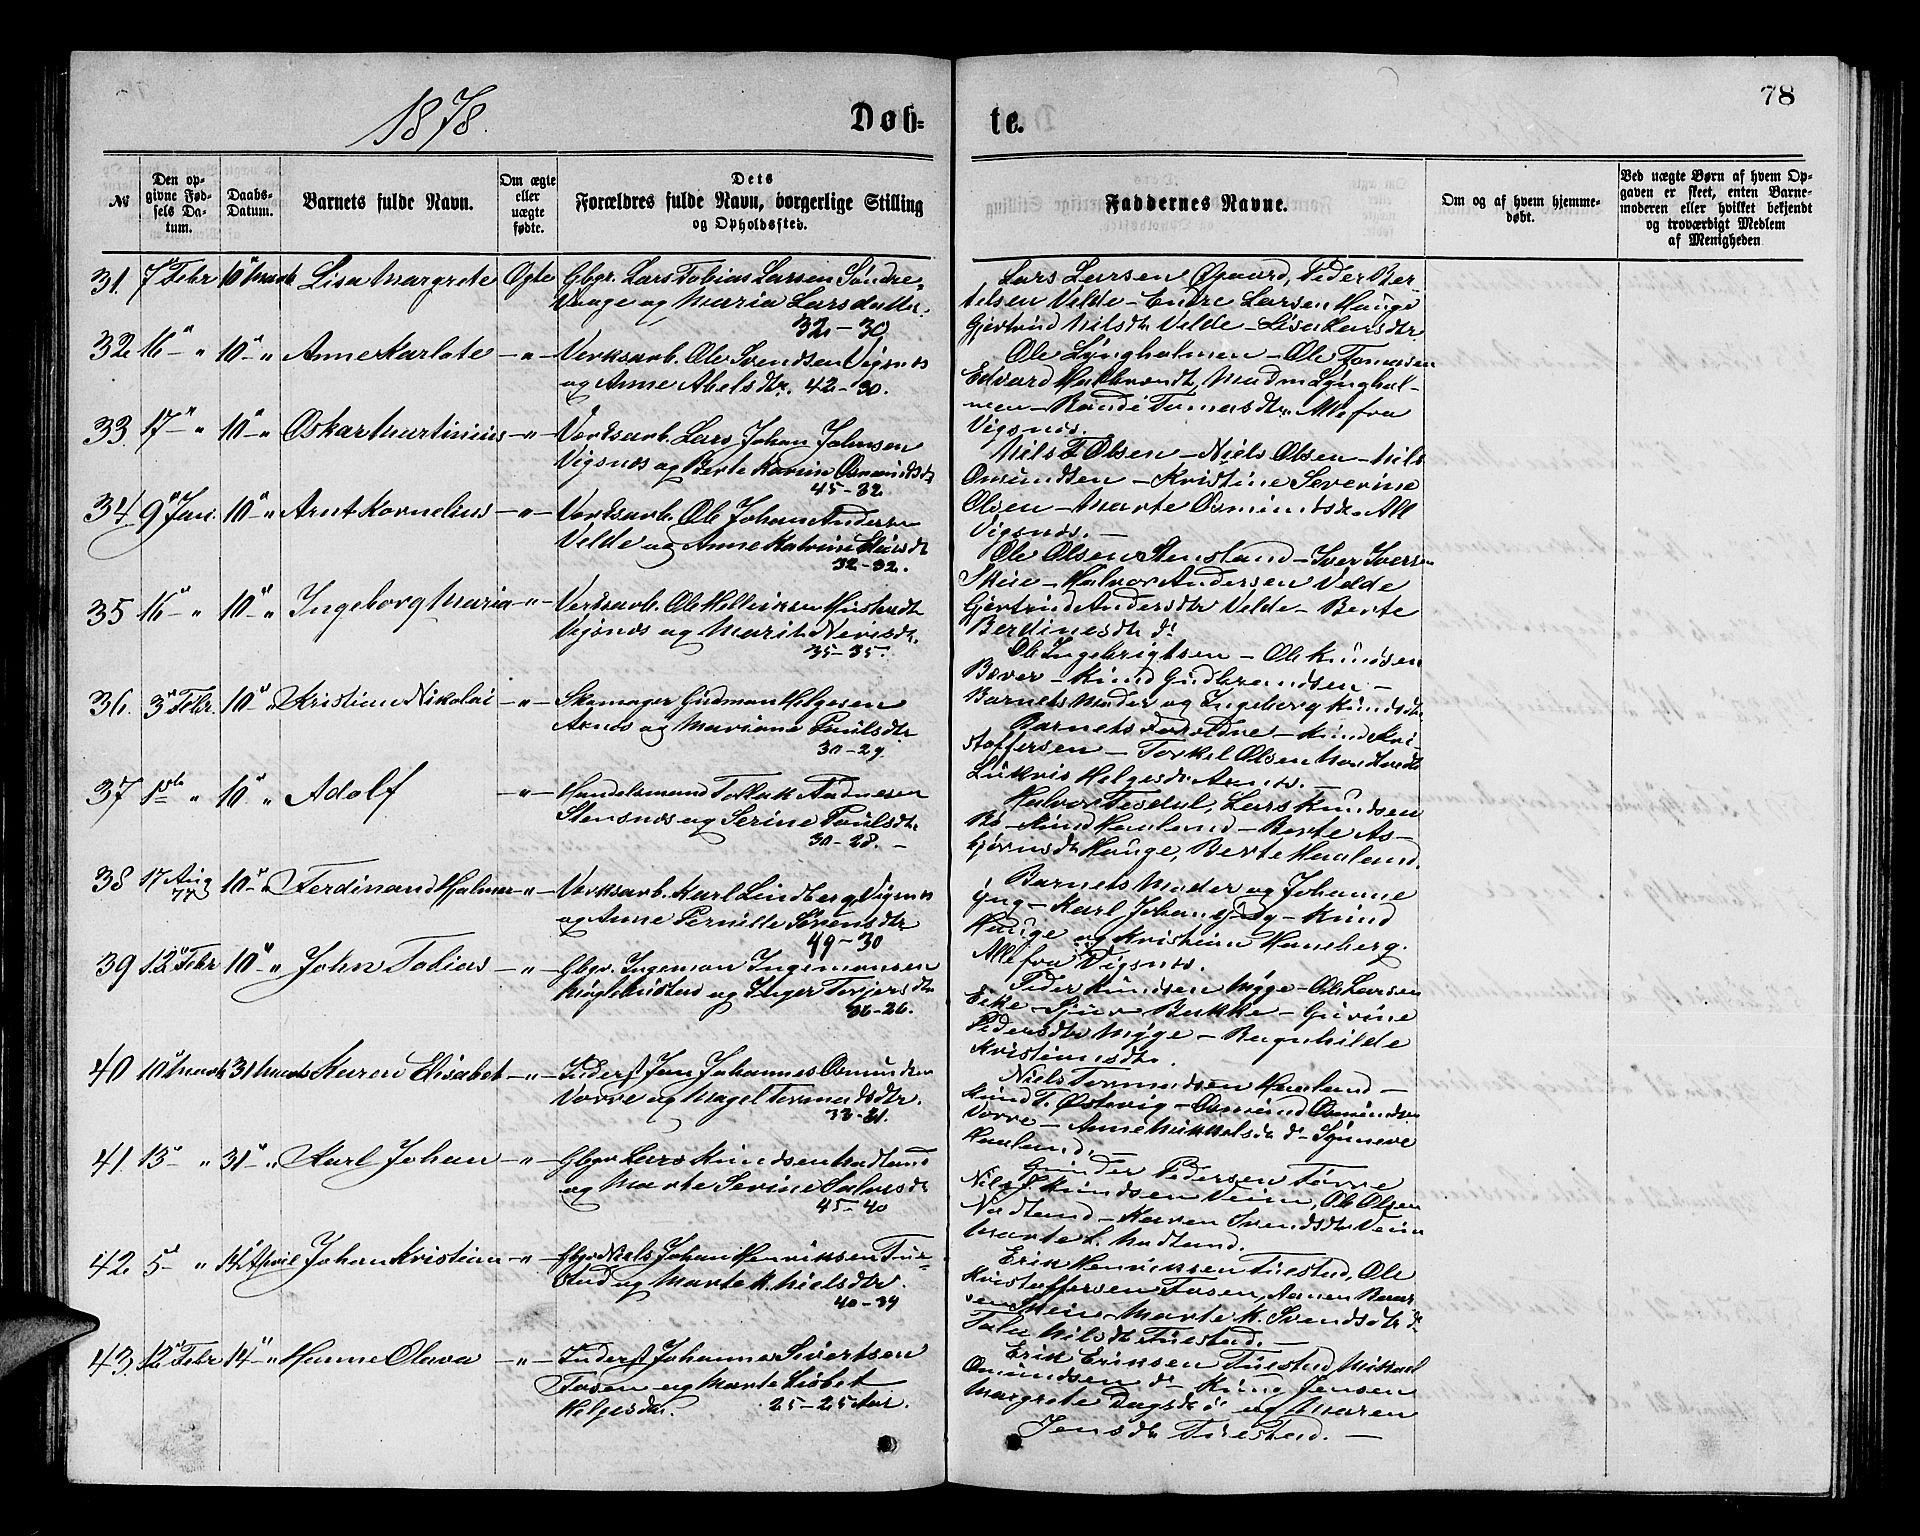 78
1878.
Døb- te.
№
Den opgivne Fødsels Datum.
Daabs-Datum.
Barnets fulde Navn.
Om ægte eller uægte fødte.
Dets Forældres fulde Navn, borgerlige Stilling og Opholdssted.
Faddernes Navne.
Om og af hvem hjemmedøbt.
Ved uægte Børn af hvem Opgaven er skeet, enten Barnemoderen eller hvilket bekjendt og troværdigt Medlem af Menigheden
31. 7 Febr 10 March Lisa Margrete Ægte Gbgr. Lars Tobias Larsen Søndre
Vaage og Maria Larsdatter.
32-30
Lars Larsen Peder Ber-
telsen Velde - Endre Larsen Hauge
Gjertrud Nilsdtr Velde - Lisa Larsdtr
32. 16 - " 10 - " Anne Karlote - " - Verksarb. Ole Svendsen Vigsnæs
og Anne Abelsdtr. 42-30.
Ole Lyngholmen - Ole Tomasen
Edvard Madm Lynghol-
men - Tomasdtr. Alle fra
Vigsnæs.
33 17 - " 10 - " Oskar Martinius - " - Verksarb. Lars Johan Johnsen
Vigsnæs og Berte Karine Osmundsdtr
45-32
Nils T Olsen - Niels Olsen - Nils
Omundsen - Kristine Severine
Olsen - Marte Osmundsdtr Alle
Vigsnæs. -
34. 9 Jan. 10 - " Arnt Kornelius - " - Verksarb. Ole Johan Andersen
Velde og Anne Katrine
32-32.
Ole Olsen Stensland - Iver Iversen
Skeie - Halvor Andersen Velde
Gjertrud Andersdtr Velde - Berte
Berdinesdtr do
35 16 - " 10 - " Ingeborg Maria - " - Verksarb. Ole
Vigsnæs og Marit
35-35.
Ole Ingebrigtsen - Ole Knudsen
Bæver - Knud Gudbrandsen -
Barnets Moder og Ingeborg Knudsdtr
36. 3 Febr. 10 - " Kristian Nikolai - " - Skomager Gudman Helgesen
Arnæs og Mariane Paulsdtr
30-29.
Barnets Forældre - Knud Kri-
stoffersen - Torkel Olsen
Helgesdtr Arnæs.
37 1ste " 10 " Adolf - " - Handelsmand Tollak Aadnesen
Stensnæs og Serine Poulsdtr.
30-28. -
Halvor Tesdal, Lars Knudsen
Bø - Knud Haaland - Berte As-
bjørnsdtr Hauge, Berte Haaland.
38 17 Aug 77 10 - " Ferdinand Hjalmar - " - Verksarb. Karl Lindberg Vigsnæs
og Anne Pernille Sørensdtr
49-30
Barnets Moder og Johanne
Karl Johan - Knud
Hauge og Kristian Haneberg.
Alle fra Vigsnæs.
39 12 Febr 10 - " John Tobias - " - Gbgr. Ingeman Ingemansen
og Inger Torjersdtr
36-26.
Peder Knudsen Myge - Ole Larsen
Eike - Sjur Bakke - Gurine
Pedersdtr Myge - Ragnhilde
Kristiansdtr.
40 10 March 31 March Karen Elisabet - " - Inderst Jan Johannes Osmundsen
Vorre og Magel Tormodsdtr.
33-31.
Niels Tormodsen Haaland -
Knud T. Østevig - Osmund Osmundsen
Vorre - Anne Mikkelsdtr do - Synneve
Haaland. -
41. 13 - " 31 - " Karl Johan - " - Gbgr Lars Knudsen Nodland
og Marte Serine
45-40
Gunder Pedersen Tørre
Nils J. Knudsen Veim, Ole Olsen
Nodland - Karen Svendsdtr Veim
Marte L. Nodland.
42. 5 - " 14 April Johan Kristian - " - Gbgr Niels Johan Henriksen Tue-
stad og Marte K. Nielsdtr.
40-34
Erik Henriksen Tuestad, Ole
Kristoffersen Fosen,
Marte K. Svendsdtr do
Nilsdtr Tuestad. -
43. 12 Febr 14 - " Hanne Olava - " - Inderst Johannes Sivertsen
Fosen og Marte Lisbet
Helgesdtr. 25-25 Aar.
Erik Eriksen Tuestad, Mikkel
Omundsen do Jensen
Margrete Dagsdtr og Maren
Jensdtr Tuestad. -